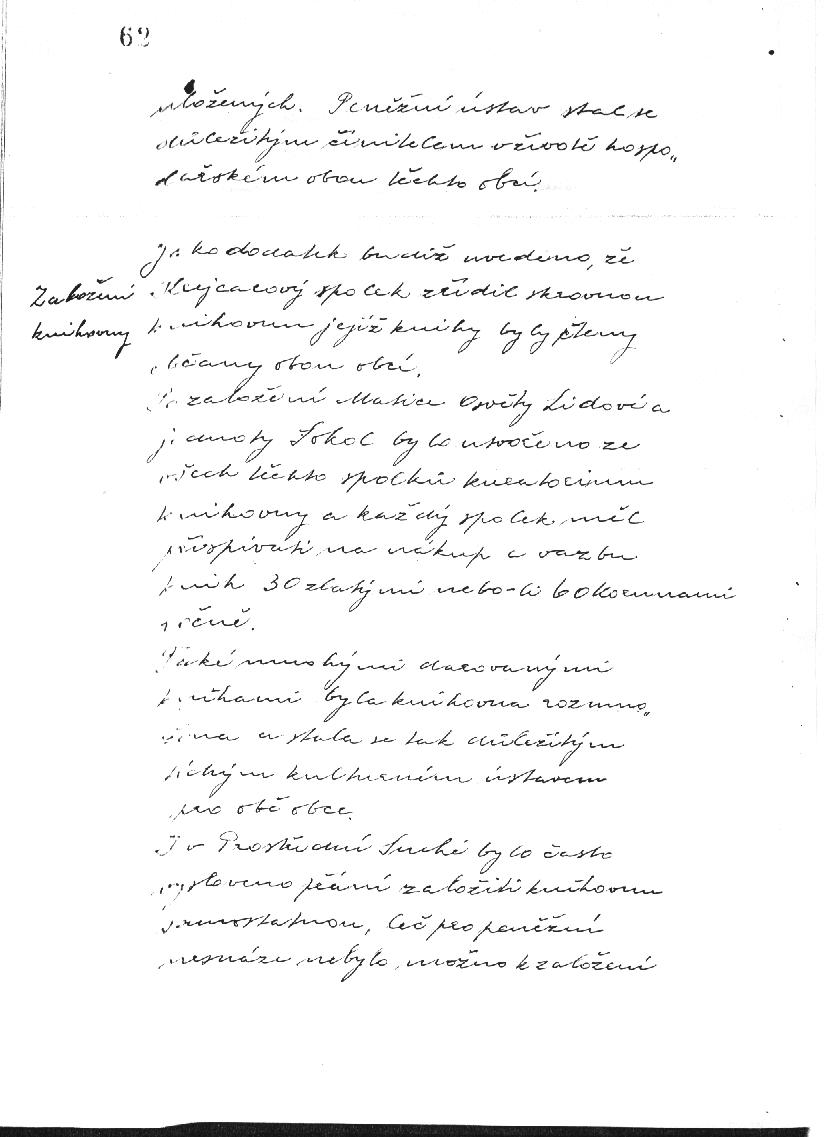 62
uložených. Peněžní ústav stal se
důležitým činitelem v životě hospo„
dářském obou těchto obcí.
Jako dodatek budiž uvedeno, že
Založení
knihovny
spolek zřídil skrovnou
knihovnu jejíž knihy byly čteny
občany obou obcí.
Po založení Matice Osvěty Lidové a
jednoty Sokol bylo utvořeno ze
všech těchto spolků kuratorium
knihovny a každý spolek měl
přispívati na nákup a vazbu
knih 30 zlatými nebo-li 60 korunami
ročně.
Také mnohými darovanými
knihami byla knihovna rozmno„
žena a stala se tak důležitým
tichým kulturním ústavem
pro obě obce.
I v Prostřední Suché bylo často
vysloveno přání založiti knihovnu
samostatnou, leč pro peněžní
nesnáze nebylo možno k založení